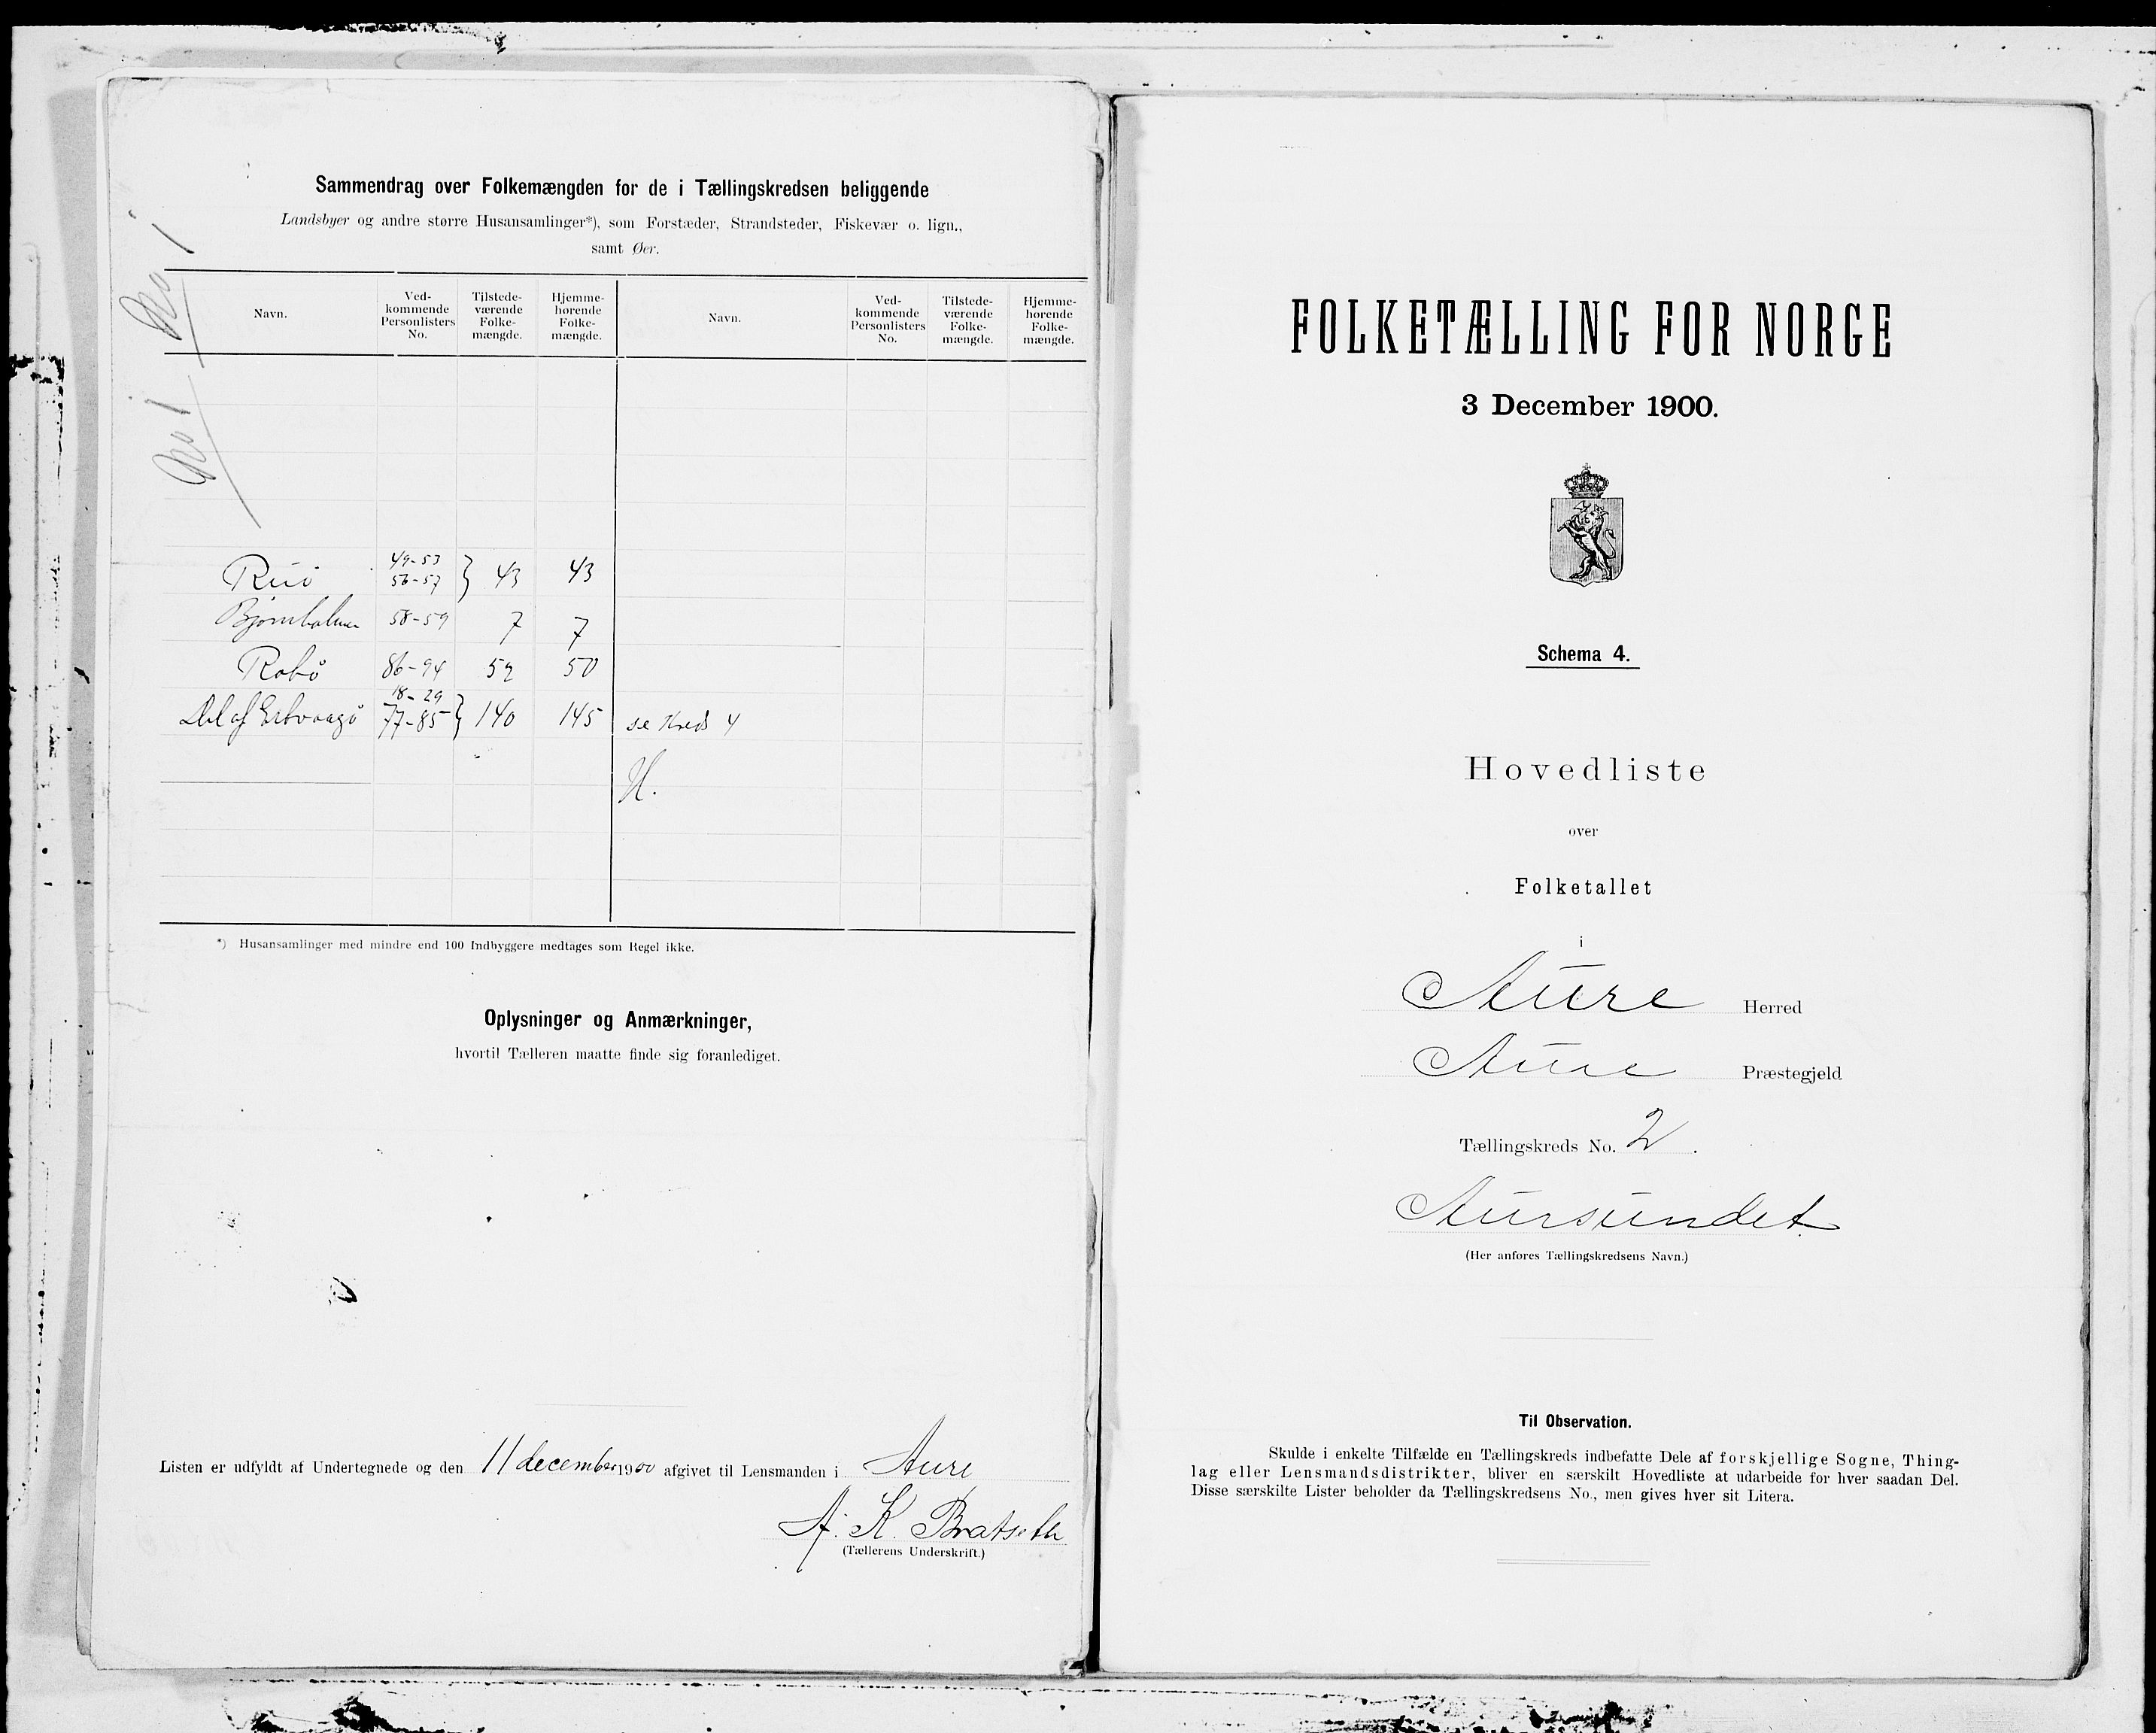 Sammendrag over Folkemængden for de i Tællingskredsen beliggende
Landsbyer og andre større Husansamlinger*), som Forstæder, Strandsteder, Fiskevær o. lign.,
samt Øer.
No 1
No 1
Navn.
Ved-
kommende
Personlisters
No.
Tilstede-
værende
Folke-
mængde.
Hjemme-
hørende
Folke-
mængde.
Navn.
Ved-
kommende
Personlisters
No.
Tilstede-
værende
Folke-
mængde.
Hjemme-
hørende
Folke-
mængde.
Ruö 49-53 56-57 } 43 43
Bjørnholmen 58-59 7 7
Robö 86-94 52 50
Del af Ertvaagö 18-29 77-85 } 140 145 se Kreds 4
H.
*) Husansamlinger med mindre end 100 Indbyggere medtages som Regel ikke.
Oplysninger og Anmærkninger,
hvortil Tælleren maatte finde sig foranlediget.
Listen er udfyldt af Undertegnede og den 11 december 1900 afgivet til Lensmanden i Aure
A. K. Bratseth
(Tællerens Underskrift.)
FOLKETÆLLING FOR NORGE
3 December 1900.
Schema 4.
Hovedliste
over
Folketallet
i
Aure Herred
Aure Præstegjeld
Tællingskreds No. 2.
Aursundet
(Her anføres Tællingskredsens Navn.)
Til Observation.
Skulde i enkelte Tilfælde en Tællingskreds indbefatte Dele af forskjellige Sogne, Thing-
lag eller Lensmandsdistrikter, bliver en særskilt Hovedliste at udarbeide for hver saadan Del.
Disse særskilte Lister beholder da Tællingskredsens No., men gives hver sit Litera.